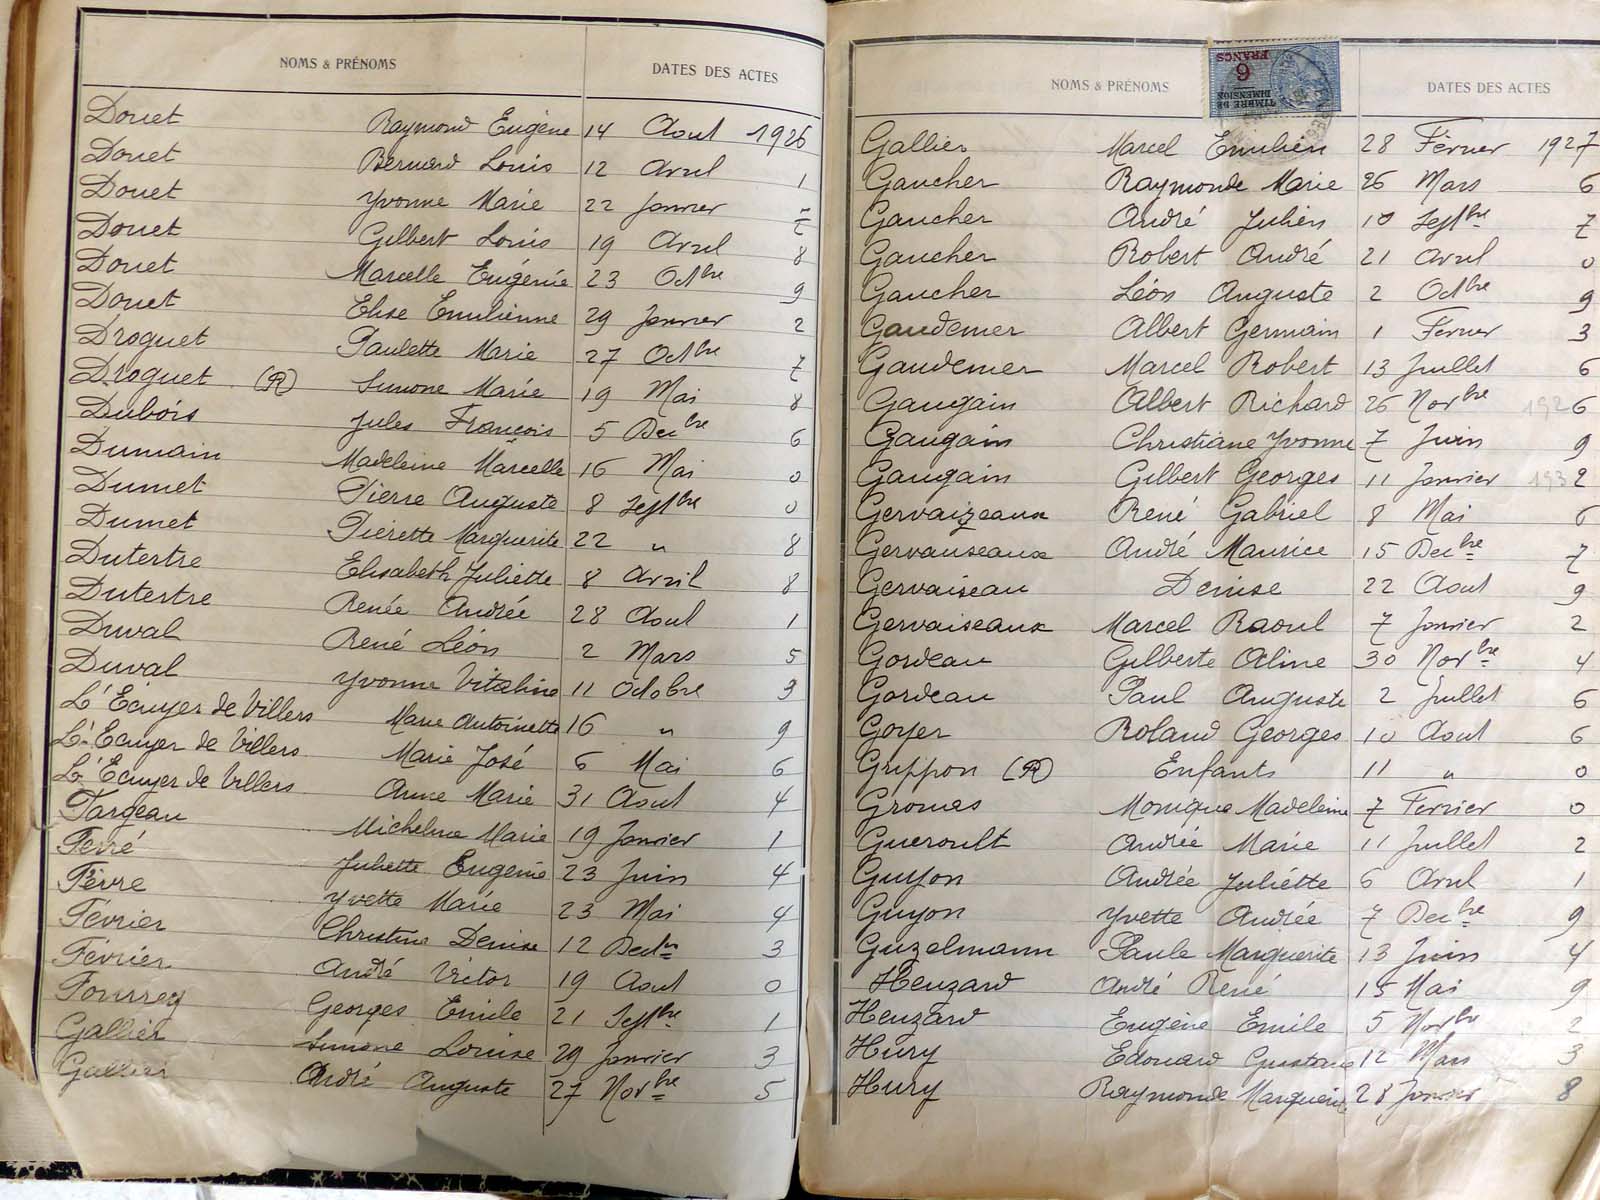 NOMS & PRÉNOMS DATES DES ACTES
Douet Raymond Eugène 14 Aout 1926
Douet Bernard Louis 12 Avril 1
Douet Yvonne Marie 22 Janvier 7
Douet Gilbert Louis 19 Avril 8
Douet Marcelle Eugénie 23 Octbre 9
Douet Elise Emilienne 29 Janvier 2
Droguet Paulette Marie 27 Octbre 7
Droguet (R) Simone Marie 19 Mai 8
Dubois Jules François 5 Decbre 6
Dumain Madeleine Marcelle 16 Mai 0
Dumet Pierre Auguste 8 Septbre 0
Dumet Pierette Marguerite 22 " 8
Dutertre Elisabeth Juliette 8 Avril 8
Dutertre Renée Andrée 28 Aout 1
Duval René Léon 2 Mars 5
Duval Yvonne Vitaline 11 Octobre 3
L'Ecuyer de Villers Marie Antoinette 16 " 9
L'Ecuyer de Villers Marie José 6 Mai 6
L'Ecuyer de Villers Anne Marie 31 Aout 4
Fargeau Micheline Marie 19 Janvier 1
Ferré Juliette Eugénie 23 Juin 4
Fèvre Yvette Marie 23 Mai 4
Février Christine Denise 12 3
Février André Victor 19 Aout 0
Fourrey Georges Emile 21 Septbre 1
Gallier Simone Louise 29 Janvier 3
Gallier André Auguste 27 Novbre 5
NOMS & PRÉNOMS DATES DES ACTES
TIMBRE DE DIMENSION
6 FRANCS
Gallier Marcel Emilien 28 Février 1927
Gaucher Raymonde Marie 26 Mars 6
Gaucher André Julien 10 Septbre 7
Gaucher Robert André 21 Avril 0
Gaucher Léon Auguste 2 Octbre 9
Gaudemer Albert Germain 1 Février 3
Gaudemer Marcel Robert 13 Juillet 6
Gaugain Albert Richard 26 Novbre 1926
Gaugain Christiane Yvonne 7 Juin 9
Gaugain Gilbert Georges 11 Janvier 1932
Gervaizeaux René Gabriel 8 Mai 6
Gervauseaux André Maurice 15 Decbre 7
Gervaiseau Denise 22 Aout 9
Gervaiseaux Marcel Raoul 7 Janvier 2
Gordeau Gilberte Aline 30 Novbre 4
Gordeau Paul Auguste 2 Juillet 6
Goyer Roland Georges 10 Aout 6
Grippon (R) Enfants 11 " 0
Gromas Monique Madeleine 7 Fevrier 0
Gueroult Andrée Marie 11 Juillet 2
Guyon Andrée Juliette 6 Avril 1
Guyon Yvette Andrée 7 Decbre 9
Guzelmann Paule Marguerite 13 Juin 4
Heuzard André René 15 Mai 9
Heuzard Eugène Emile 5 Novbre 2
Hury Edouard Gustave 12 Mars 3
Hury Raymonde Marguerite 28 Janvier 8